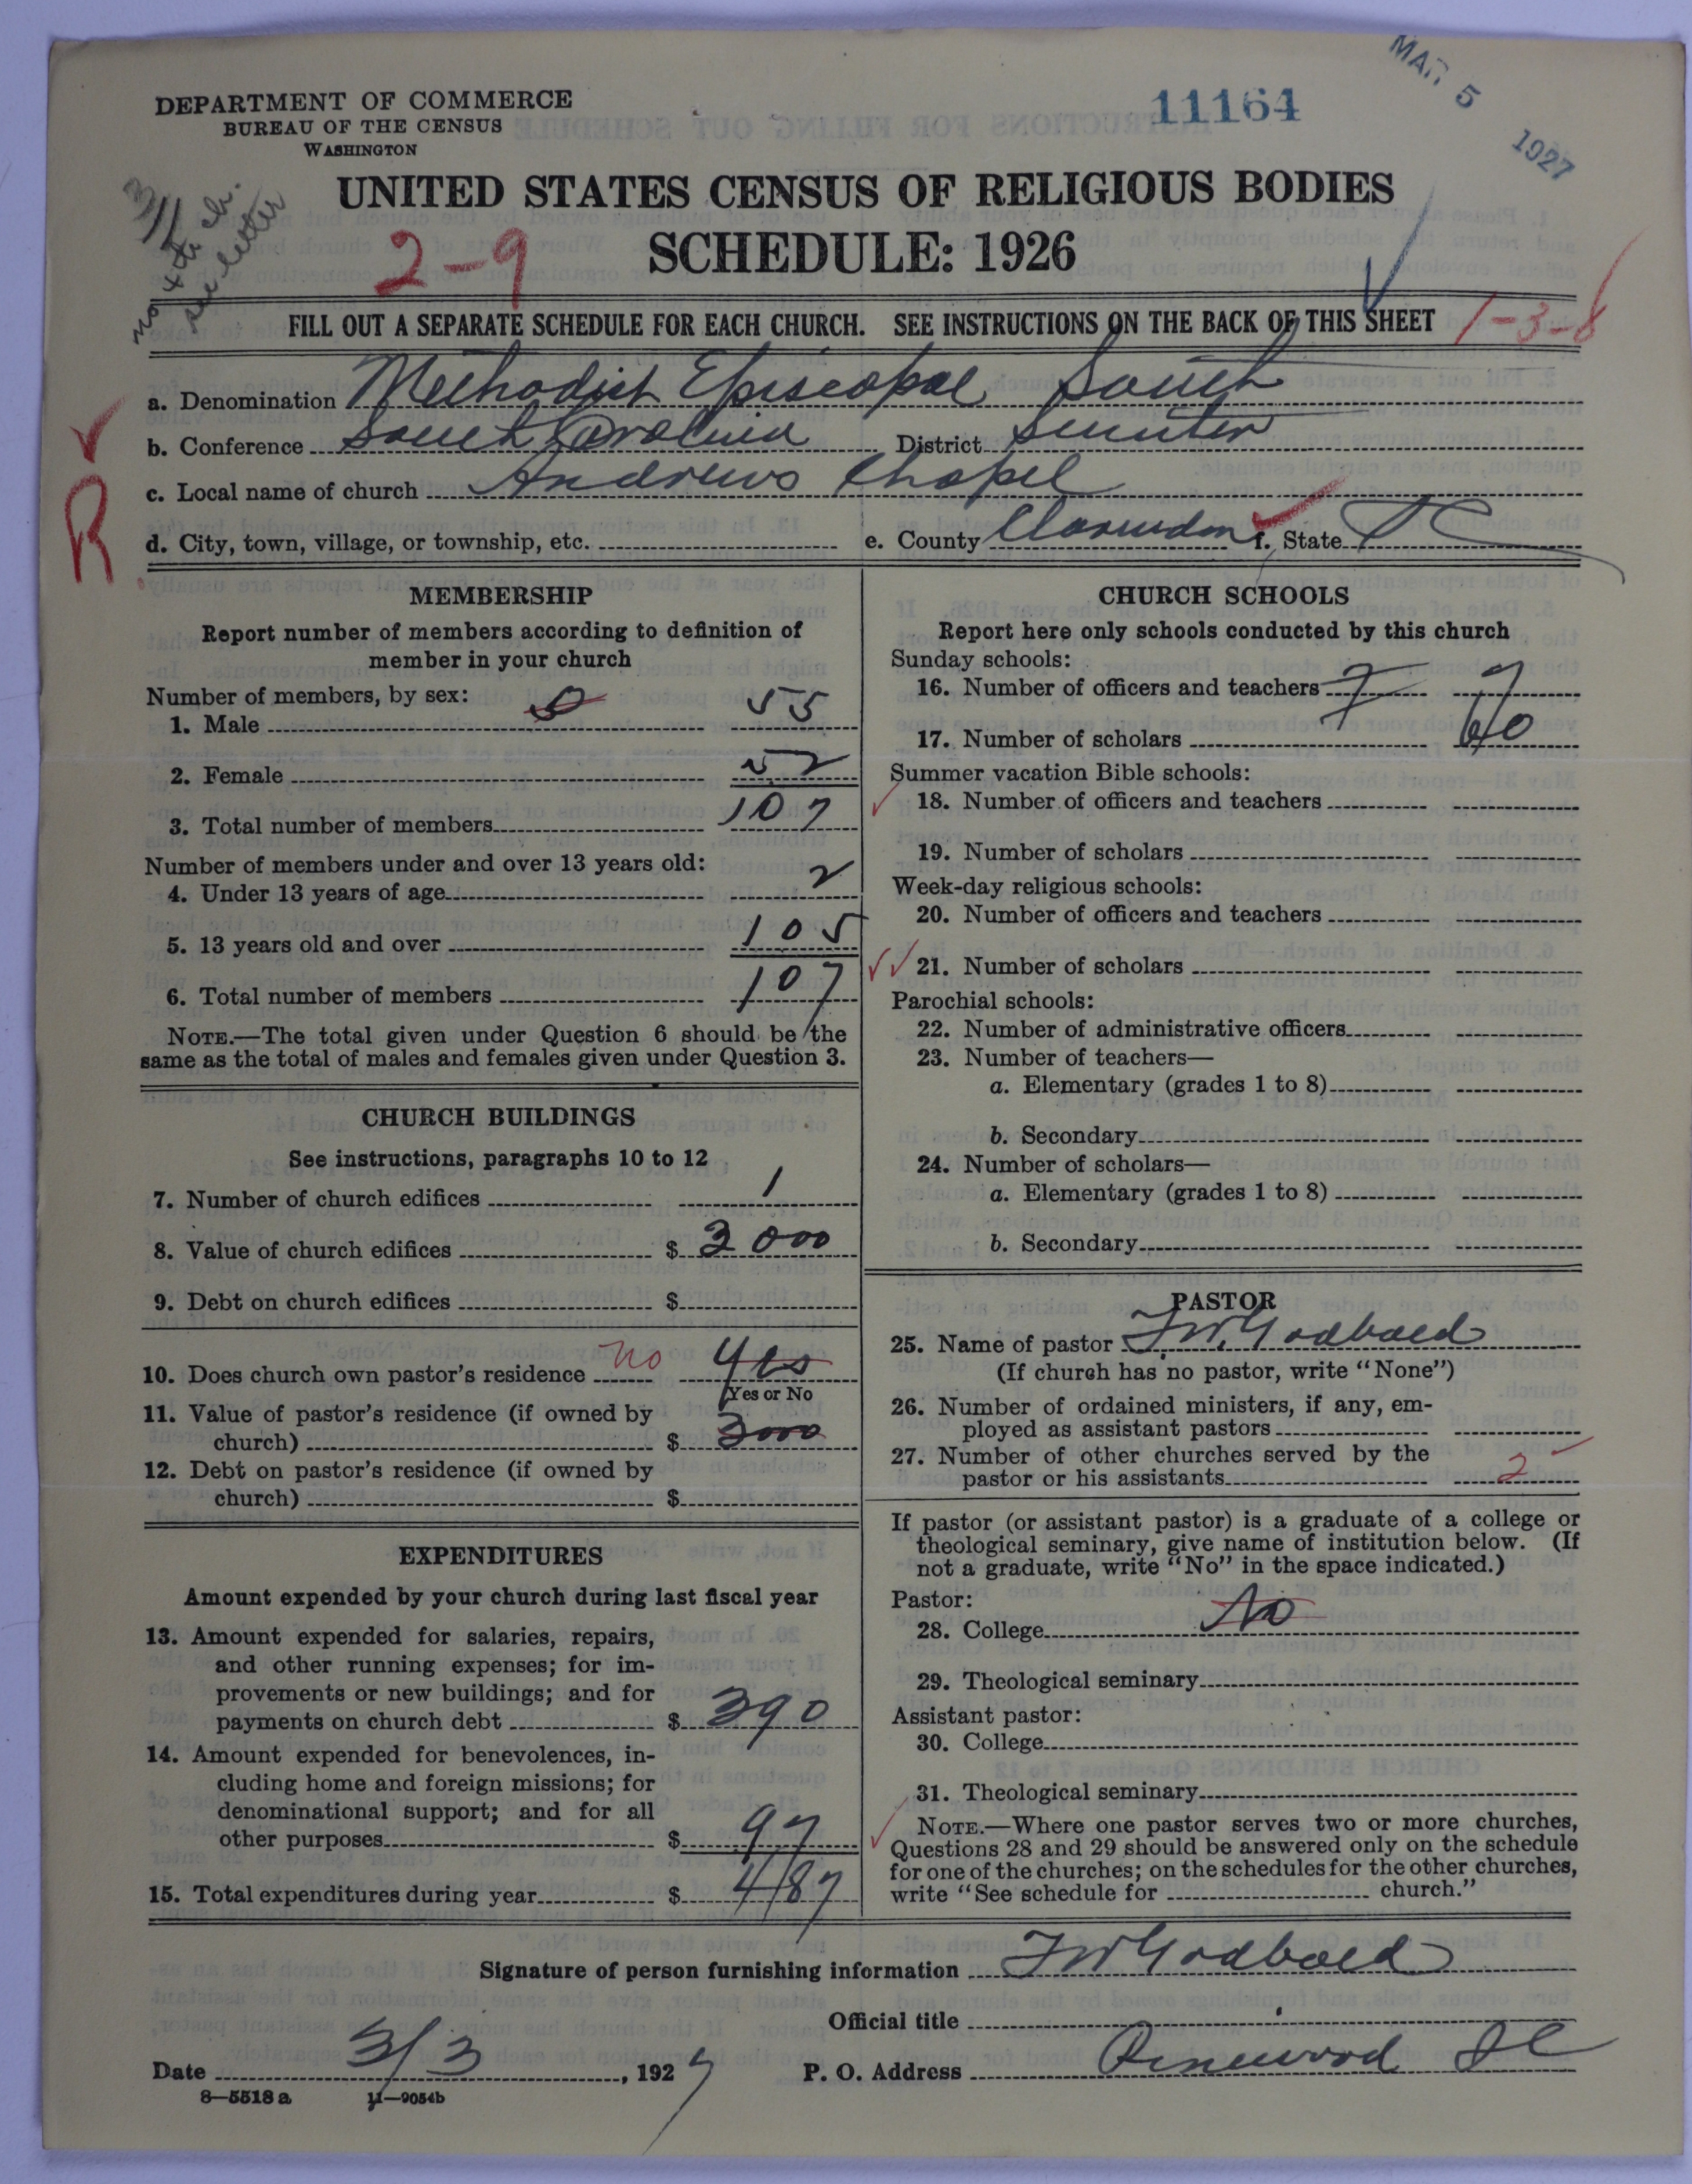 MAR 5 1927
11164
DEPARTMENT OF COMMERCE
BUREAU OF THE CENSUS
WASHINGTON
UNITED STATES CENSUS OF RELIGIOUS BODIES
SCHEDULE: 1926
3/1
see letter
2-9
FILL OUT A SEPARATE SCHEDULE FOR EACH CHURCH. SEE INSTRUCTIONS ON THE BACK OF THIS SHEET 1-3-8
a. Denomination Methodist Episcopal South
b. Conference South Carolina District Sumter
c. Local name of church Andrews Chapel
R
d. City, town, village, or township, etc. e. County Clarendon f. State S C
MEMBERSHIP
Report number of members according to definition of
member in your church
Number of members, by sex:
1. Male 55
2. Female 52
3. Total number of members 107
Number of members under and over 13 years old:
4. Under 13 years of age 2
5. 13 years old and over 105
6. Total number of members 107
NOTE.—The total given under Question 6 should be the
same as the total of males and females given under Question 3.
CHURCH BUILDINGS
See instructions, paragraphs 10 to 12
7. Number of church edifices 1
8. Value of church edifices $ 3000
9. Debt on church edifices $
10. Does church own pastor's residence no Yes
Yes or No
11. Value of pastor's residence (if owned by
church) $ 3000
12. Debt on pastor's residence (if owned by
church) $
EXPENDITURES
Amount expended by your church during last fiscal year
13. Amount expended for salaries, repairs,
and other running expenses; for im-
provements or new buildings; and for
payments on church debt $ 390
14. Amount expended for benevolences, in-
cluding home and foreign missions; for
denominational support; and for all
other purposes $ 97
15. Total expenditures during year $ 487
CHURCH SCHOOLS
Report here only schools conducted by this church
Sunday schools:
16. Number of officers and teachers 7 7
17. Number of scholars 60
Summer vacation Bible schools:
18. Number of officers and teachers
19. Number of scholars
Week-day religious schools:
20. Number of officers and teachers
21. Number of scholars
Parochial schools:
22. Number of administrative officers
23. Number of teachers—
a. Elementary (grades 1 to 8)
b. Secondary
24. Number of scholars—
a. Elementary (grades 1 to 8)
b. Secondary
PASTOR
25. Name of pastor F W Godbold
(If church has no pastor, write "None")
26. Number of ordained ministers, if any, em-
ployed as assistant pastors
27. Number of other churches served by the
pastor or his assistants 2
If pastor (or assistant pastor) is a graduate of a college or
theological seminary, give name of institution below. (If
not a graduate, write "No" in the space indicated.)
Pastor:
28. College No
29. Theological seminary
Assistant pastor:
30. College
31. Theological seminary
NOTE.—Where one pastor serves two or more churches,
Questions 28 and 29 should be answered only on the schedule
for one of the churches; on the schedules for the other churches,
write "See schedule for church."
Signature of person furnishing information F W Godbold
Official title
Date 3/3, 1927 P. O. Address Pinewood S C
8—5518 a 11—9054b